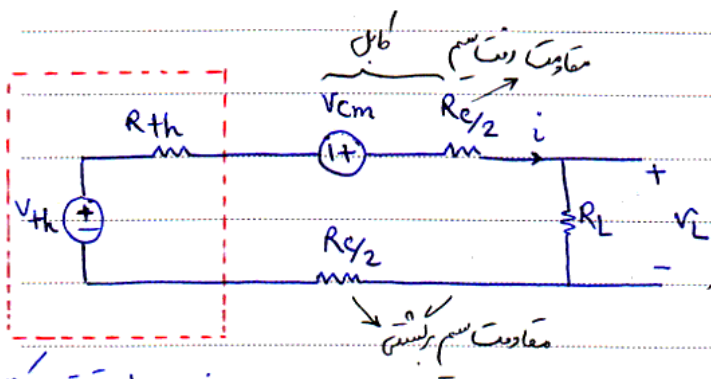 کابل
مقاومت رفت سیم
Vcm
Rc/2
Rth
i
+
Vth
RL
VL
Rc/2
-
مقاومت سیم برگشتی